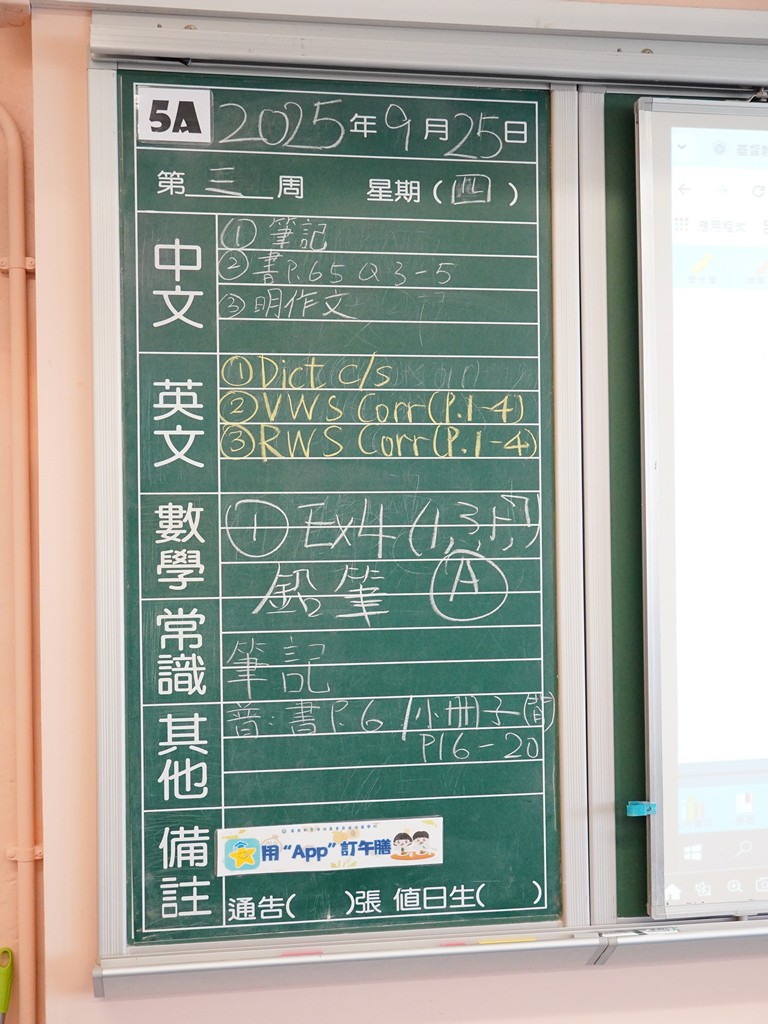 5A 2025年9月25日
第三周 星期(四)
中文
①筆記
②書P.65 Q3-5
③明作文
英文
①Dict c/s
②VWS Corr(P.1-4)
③RWS Corr(P.1-4)
數學
①Ex4 (1,3,5,7)
鉛筆 Ⓐ
常識
筆記
其他
普:書P.6/小冊子(背)
P16-20
備註
用“App”訂午膳
通告( )張 值日生( )
基督教
應用程式